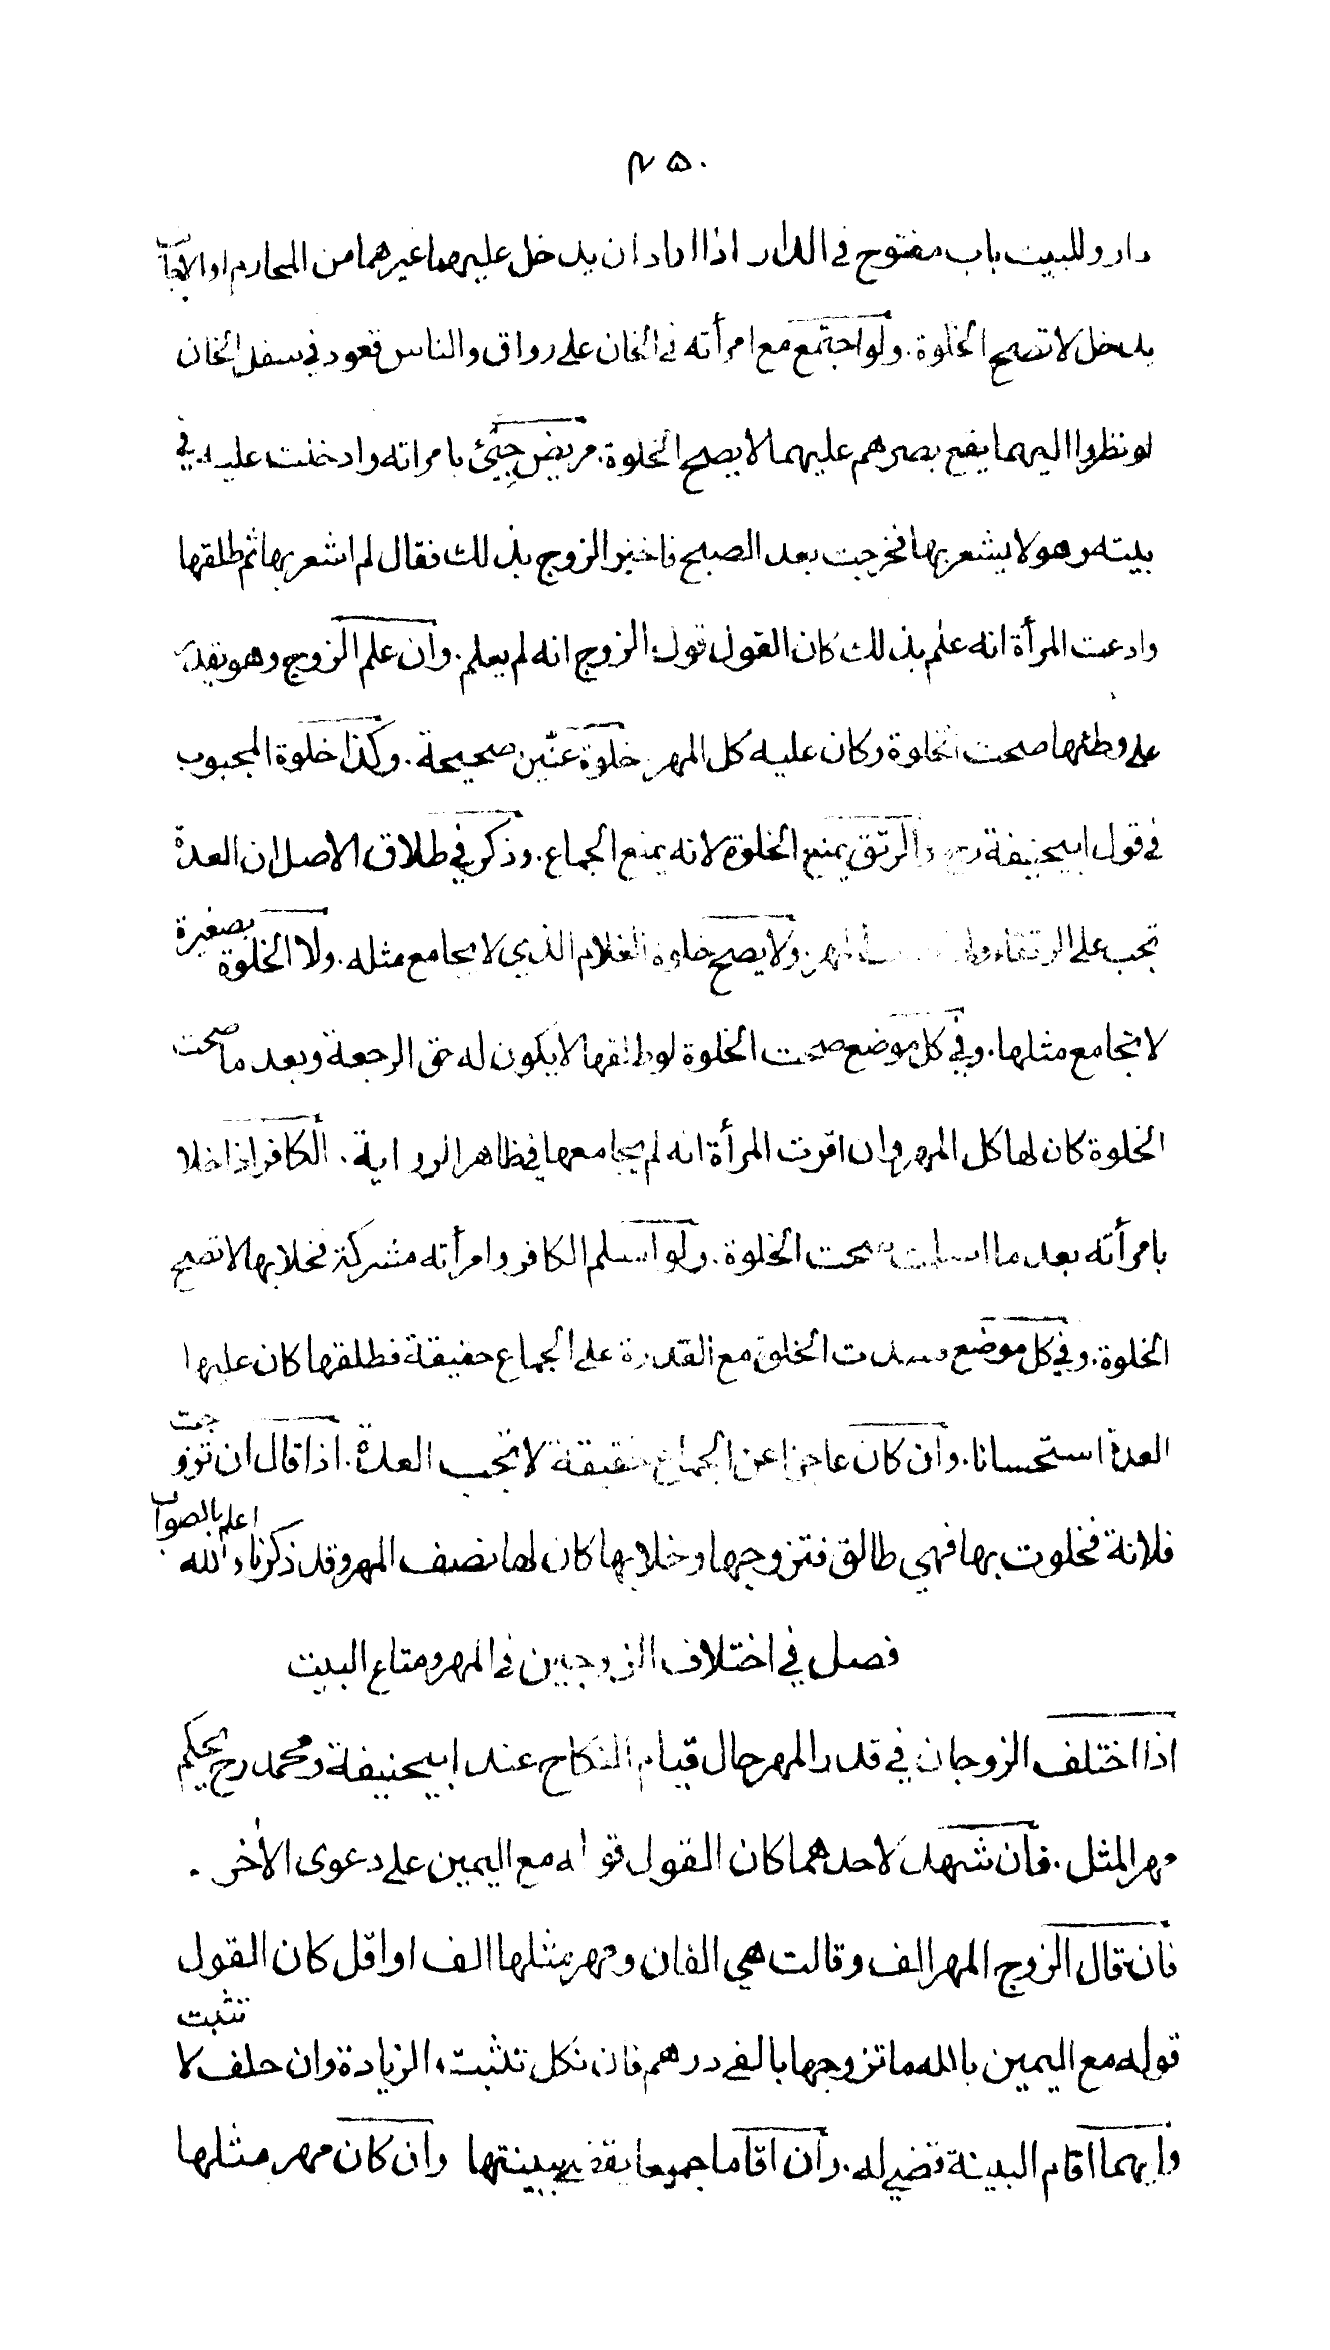 ۴۵۰
دار وللبيت باب مفتوح في الدار اذا اراد ان يدخل عليهما غيرهما من المحارم او الاجانب
يدخل لا تصح الخلوة. ولو اجتمع مع امرأته في الخان على رواق والناس قعود في سفل الخان
لو نظروا اليهما يقع بصرهم عليهما لا يصح الخلوة. مريض جيئ بامراته وادخلت عليه في
بيته وهو لا يشعر بها فخرجت بعد الصبح فاخبر الزوج بذلك فقال لم اشعر بها ثم طلقها
وادعت المرأة انه علم بذلك كان القول قول الزوج انه لم يعلم. وان علم الزوج وهو يقدر
على وطئها صحت الخلوة وكان عليه كل المهر خلوة عنّين صحيحة. وكذا خلوة المجبوب
في قول ابيحنيفة رح والرتق يمنع الخلوة لانه يمنع الجماع. وذكر في طلاق الاصل ان العدة
تجب على الرتقاء ولها المهر. ولا يصح خلوة الغلام الذي لا يجامع مثله. ولا الخلوة بصغيرة
لا تجامع مثلها. وفي كل موضع صحت الخلوة لو طلقها لا يكون له حق الرجعة وبعد ما صحت
الخلوة كان لها كل المهر وان اقرت المرأة انه لم يجامعها في ظاهر الرواية. الكافر اذا خلا
بامرأته بعد ما اسلمت صحت الخلوة. ولو اسلم الكافر وامرأته مشركة فخلا بها لا تصح
الخلوة. وفي كل موضع فسدت الخلوة مع القدرة على الجماع حقيقة فطلقها كان عليها
العدة استحسانا. وان كان عاجزا عن الجماع حقيقة لا تجب العدة. اذا قال ان تزوجت
فلانة فخلوت بها فهي طالق فتزوجها وخلا بها كان لها نصف المهر وقد ذكرناه والله اعلم بالصواب
فصل في اختلاف الزوجين في المهر ومتاع البيت
اذا اختلف الزوجان في قدر المهر حال قيام النكاح عند ابيحنيفة ومحمد رح يحكم
مهر المثل. فان شهد لاحدهما كان القول قوله مع اليمين على دعوى الاخر.
فان قال الزوج المهر الف وقالت هي الفان ومهر مثلها الف او اقل كان القول
قوله مع اليمين بالله ما تزوجها بالفي درهم فان نكل تثبت الزيادة وان حلف لا تثبت
وايهما اقام البينة قضي له. وان اقاما جميعا يقضى ببينتها وان كان مهر مثلها